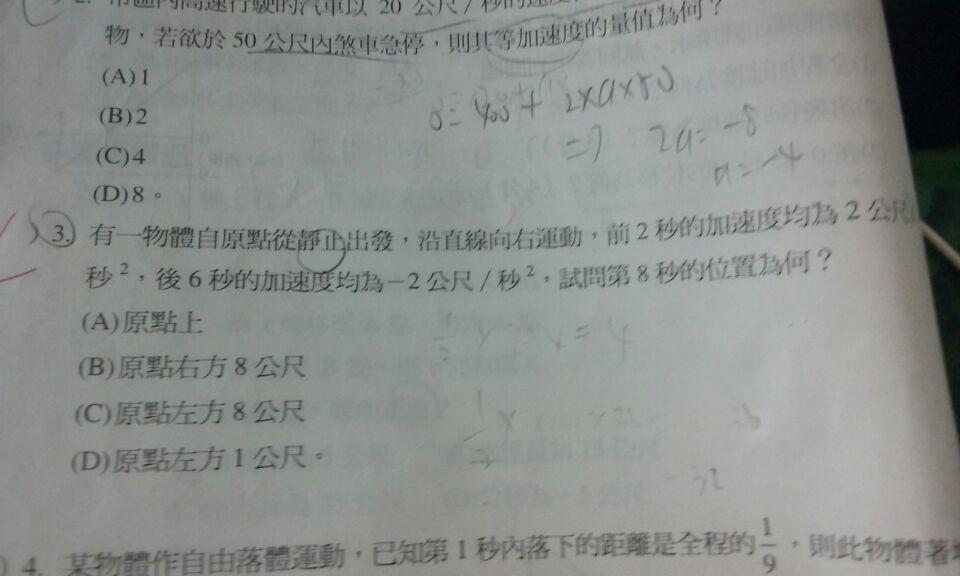 2. 帶區內高速行駛的汽車以 20 公尺/秒的速
物,若欲於50公尺內煞車急停,則其等加速度的量值為何?
(A)1
(B)2
(C)4
(D)8。
0=400+2×a×50
=> 2a=-8
a=-4
3. 有一物體自原點從靜止出發,沿直線向右運動,前2秒的加速度均為2公尺/
秒²,後6秒的加速度均為-2公尺/秒²,試問第8秒的位置為何?
(A)原點上
(B)原點右方8公尺
(C)原點左方8公尺
(D)原點左方1公尺。
4. 某物體作自由落體運動,已知第1秒內落下的距離是全程的1/9,則此物體著